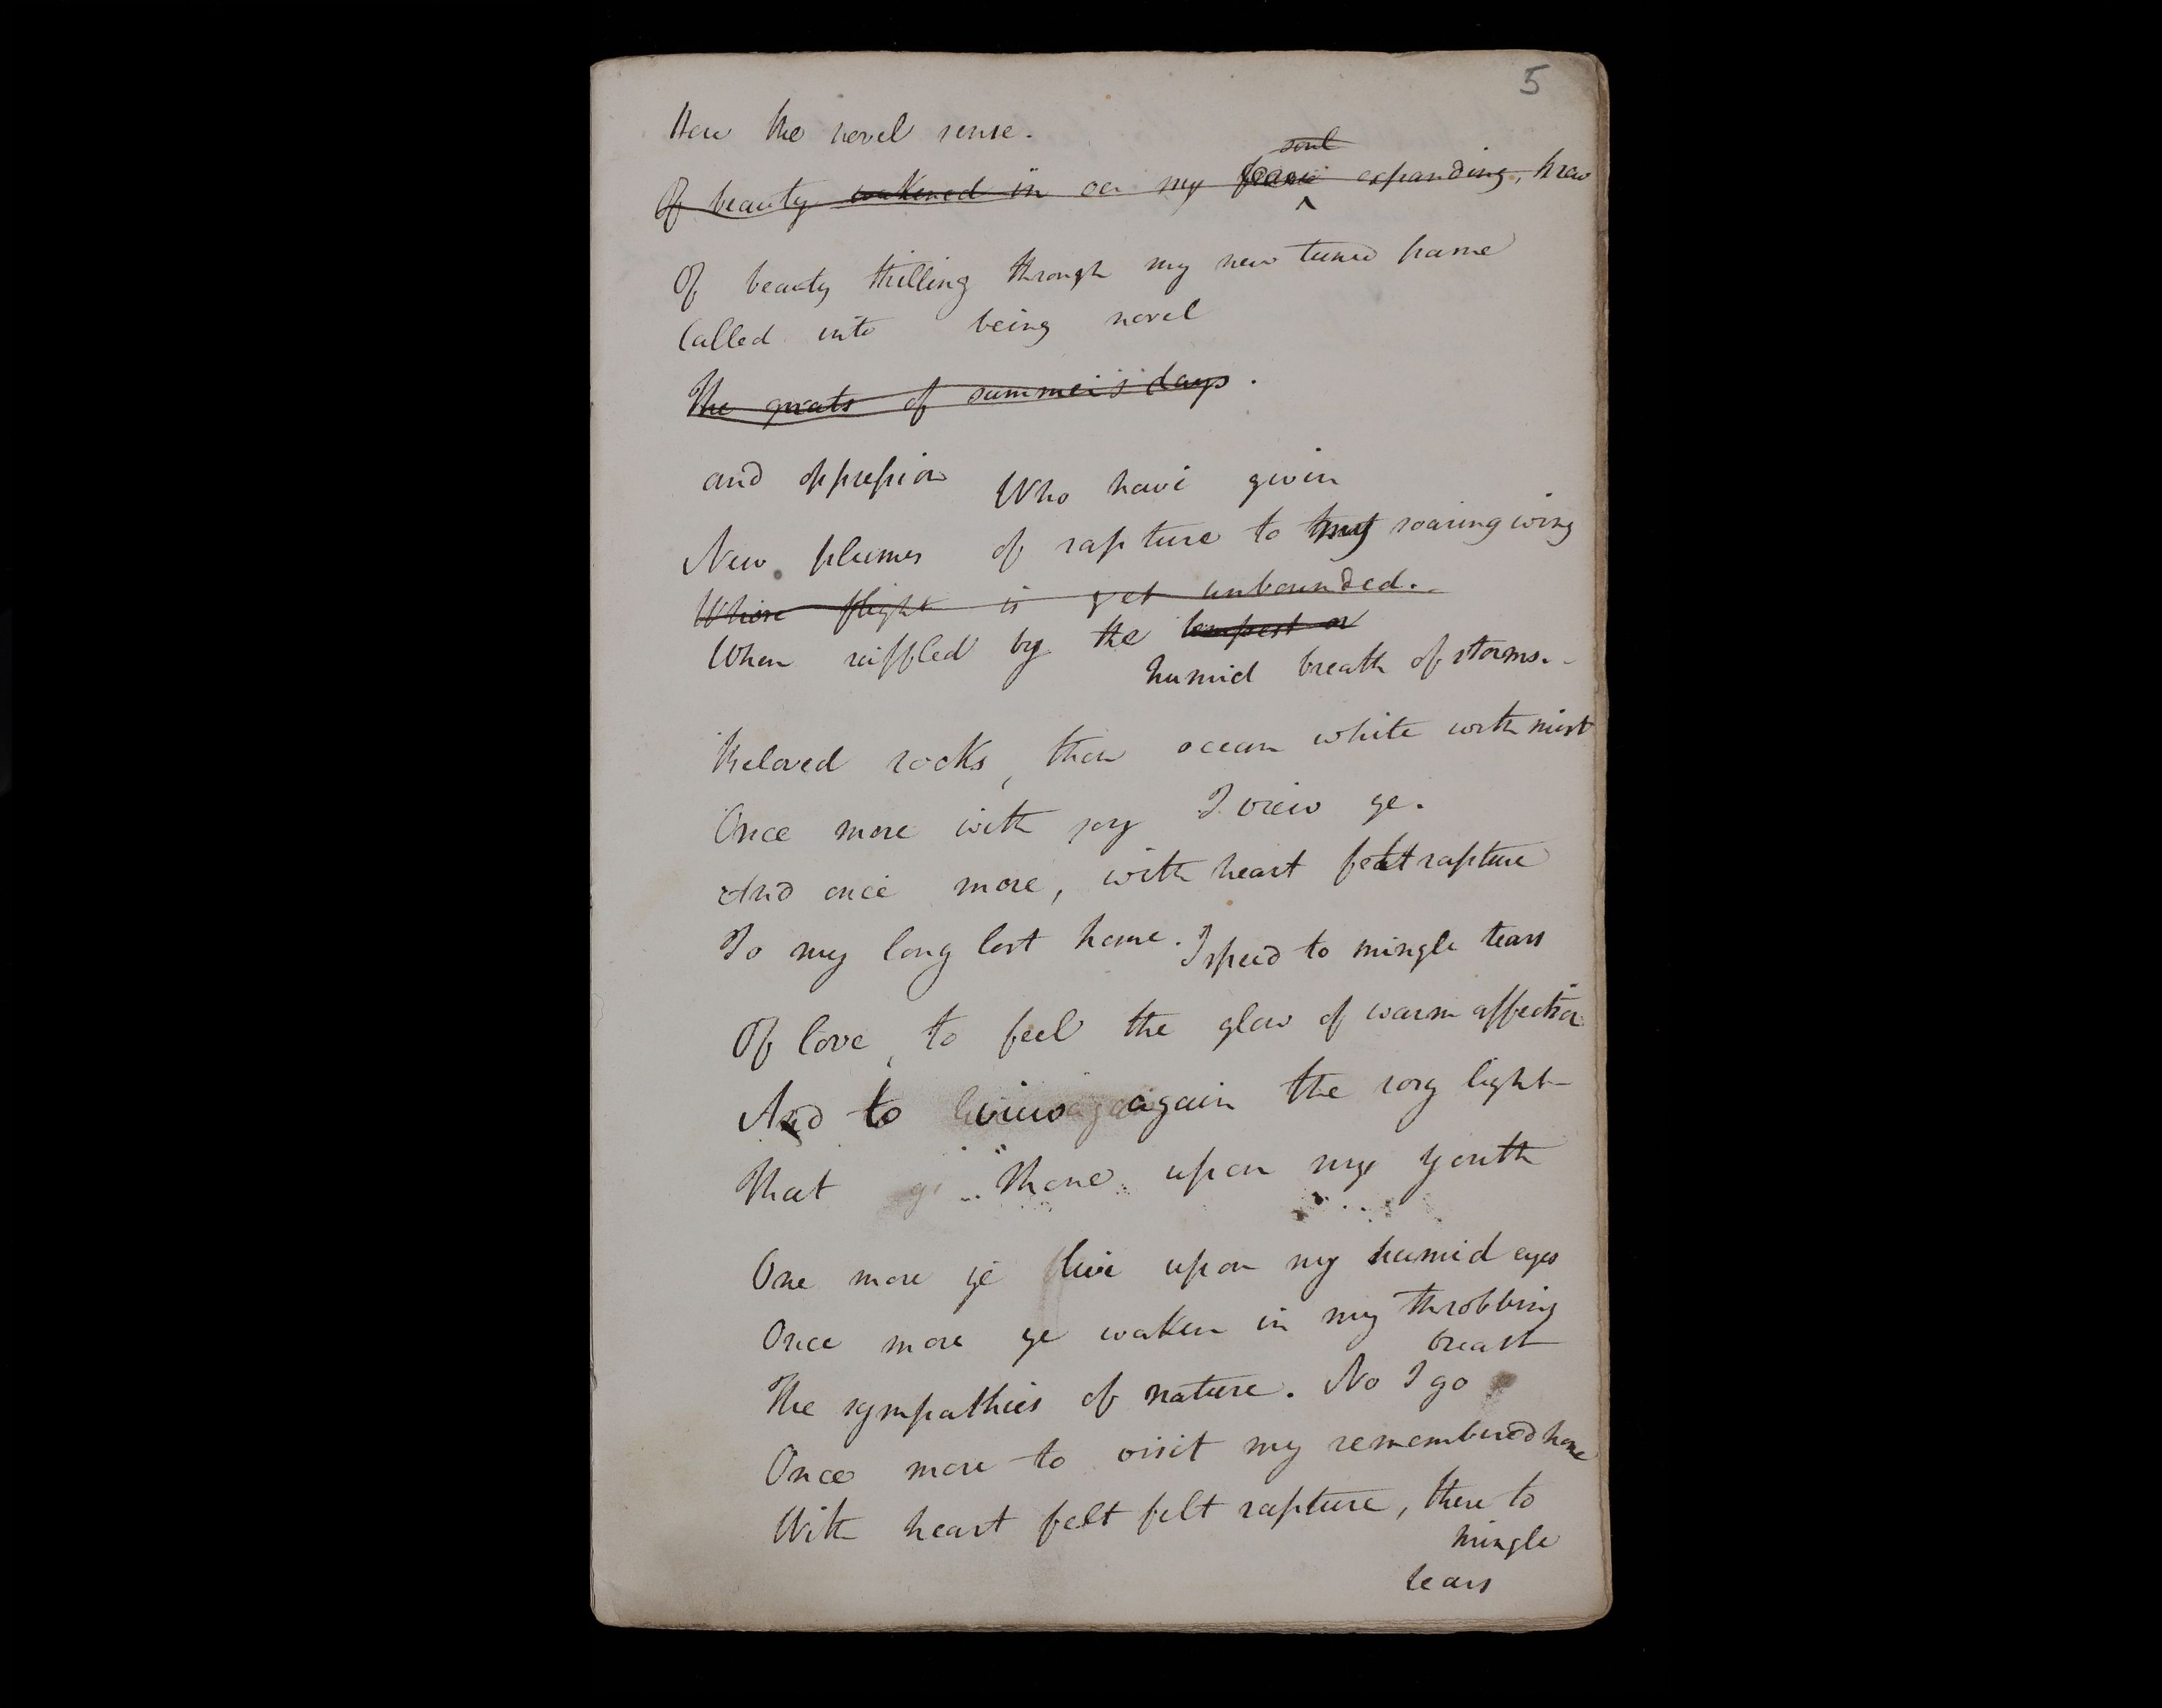 5
How the novel sense.
soul
Of beauty wakened in on my frame expanding, knew
^
Of beauty thrilling through my new tuned frame
Called into being novel
The gnats of summer's days.
and oppression Who have given
New plumes of rapture to my soaring wing
Whose flight is yet unbounded.
When ruffled by the tempest or
humid breath of storms.
Beloved rocks, thou ocean white with mist
Once more with joy I view ye.
And once more, with heart felt rapture
To my long lost home. I speed to mingle tears
Of love, to feel the glow of warm affection
And to view again the rosy light
That shone upon my youth
One more ye live upon my humid eyes
Once more ye waken in my throbbing
breast
The sympathies of nature. No I go
Once more to visit my remembered home
With heart felt felt rapture, there to
mingle
tears